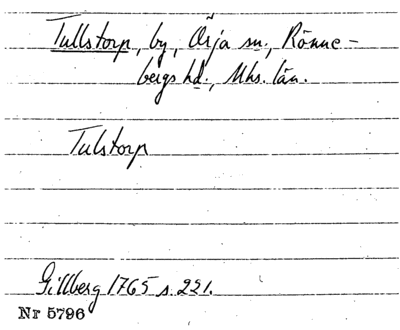 Tullstorp, by, Örja sn., Rönne-
bergs hd., Mhs. län.
Tulstorp
Gillberg 1765 s. 221.
Nr 5796